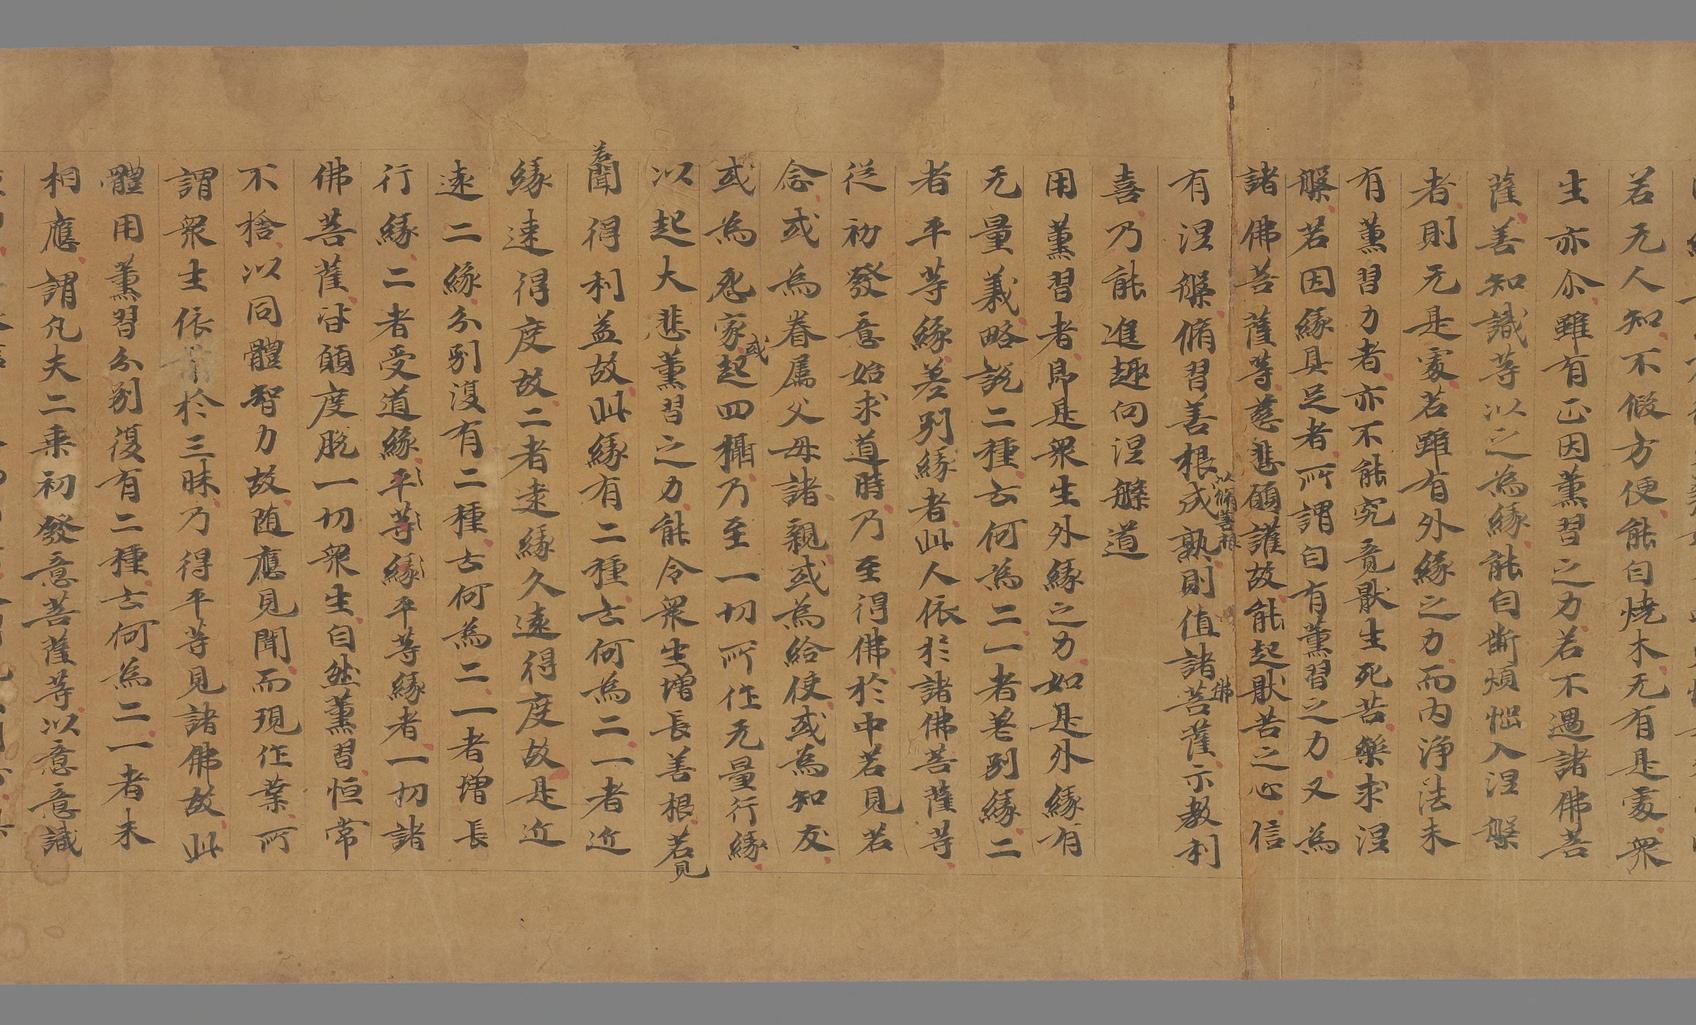 若无人知不假方便能自燒木无有是處衆
生亦尒雖有正因薰習之力若不遇諸佛菩
薩善知識等以之為緣能自斷煩惱入涅槃
者則无是處若雖有外緣之力而內淨法未
有薰習力者亦不能究竟猒生死苦樂求涅
槃若因緣具足者所謂自有薰習之力又為
諸佛菩薩等慈悲願護故能起猒苦之心信
有涅槃脩習善根以脩善根成熟則值諸佛菩薩示教利
喜乃能進趣向涅槃道
用薰習者即是衆生外緣之力如是外緣有
无量義略說二種云何為二一者差別緣二
者平等緣差別緣者此人依於諸佛菩薩等
從初發意始求道時乃至得佛於中若見若
念或為眷屬父母諸親或為給使或為知友
或為怨家或起四攝乃至一切所作无量行緣
以起大悲薰習之力能令衆生增長善根若見
若聞得利益故此緣有二種云何為二一者近
緣速得度故二者遠緣久遠得度故是近
遠二緣分別復有二種云何為二一者增長
行緣二者受道緣平等緣平等緣者一切諸
佛菩薩皆願度脫一切衆生自然薰習恒常
不捨以同體智力故隨應見聞而現作業所
謂衆生依於三昧乃得平等見諸佛故此
體用薰習分別復有二種云何為二一者未
相應謂凡夫二乘初發意菩薩等以意意識